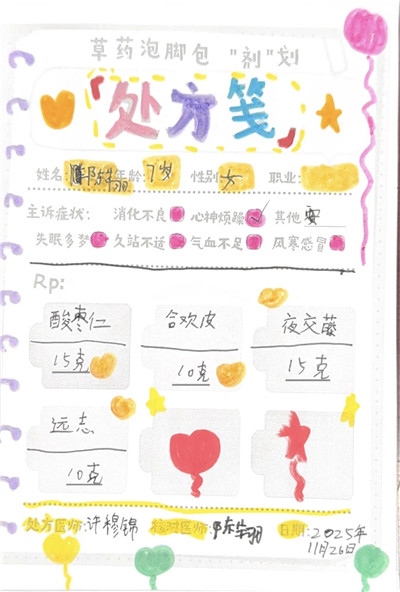 草药泡脚包 "剂"划
处方笺
姓名: 年龄: 7岁 性别: 女 职业:
主诉症状: 消化不良 心神烦躁 其他
失眠多梦 久站不适 气血不足 风寒感冒
Rp:
酸枣仁 合欢皮 夜交藤
15克 10克 15克
远志
10克
处方医师: 许穆锦 核对医师: 日期: 2025年
11月26日